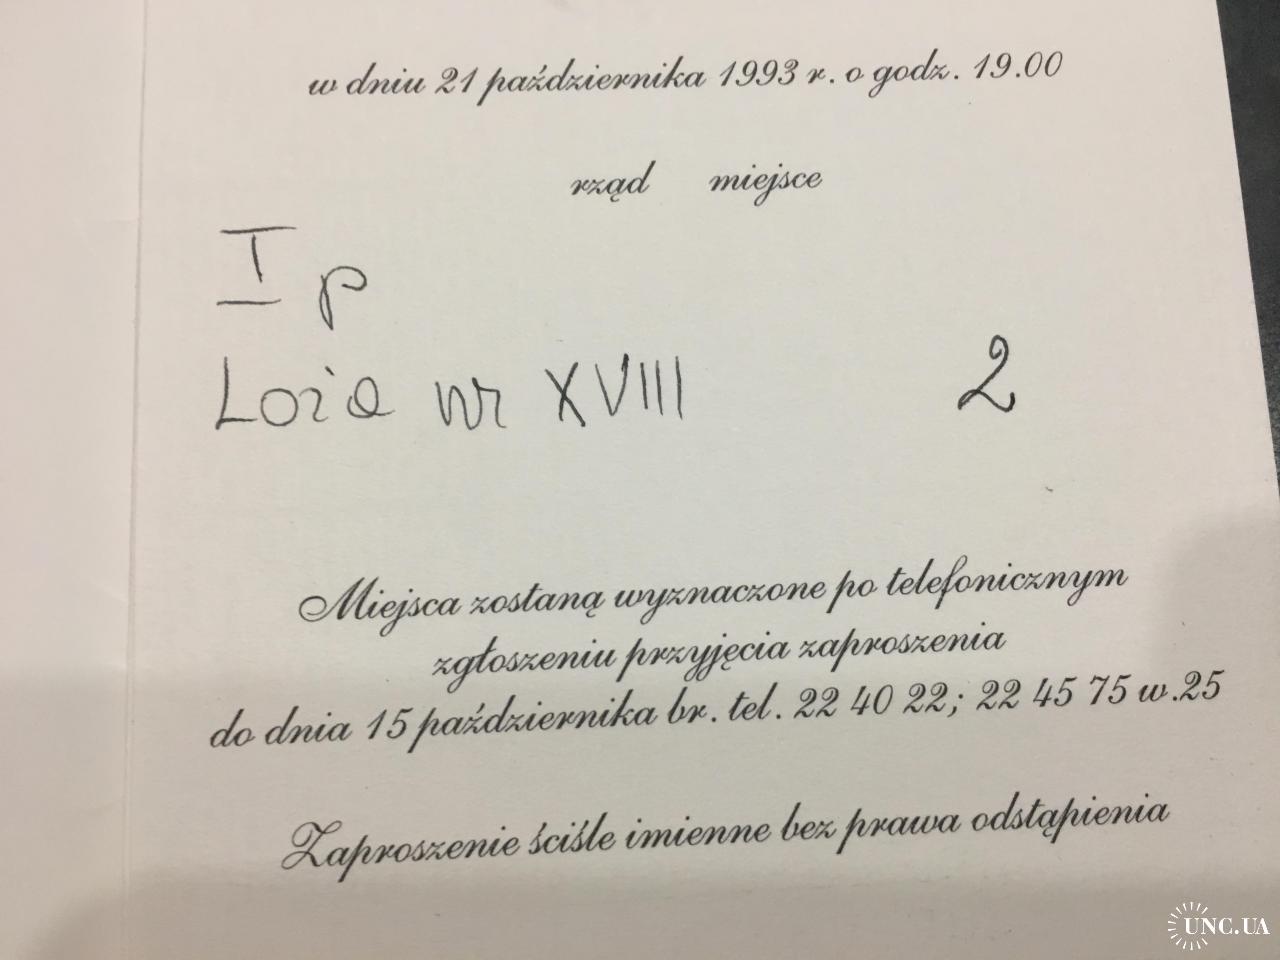 w dniu 21 października 1993 r. o godz. 19.00
rząd miejsce
I p
Loża nr XVIII 2
Miejsca zostaną wyznaczone po telefonicznym
zgłoszeniu przyjęcia zaproszenia
do dnia 15 października br. tel. 22 40 22; 22 45 75 w.25
Zaproszenie ściśle imienne bez prawa odstąpienia
UNC.UA